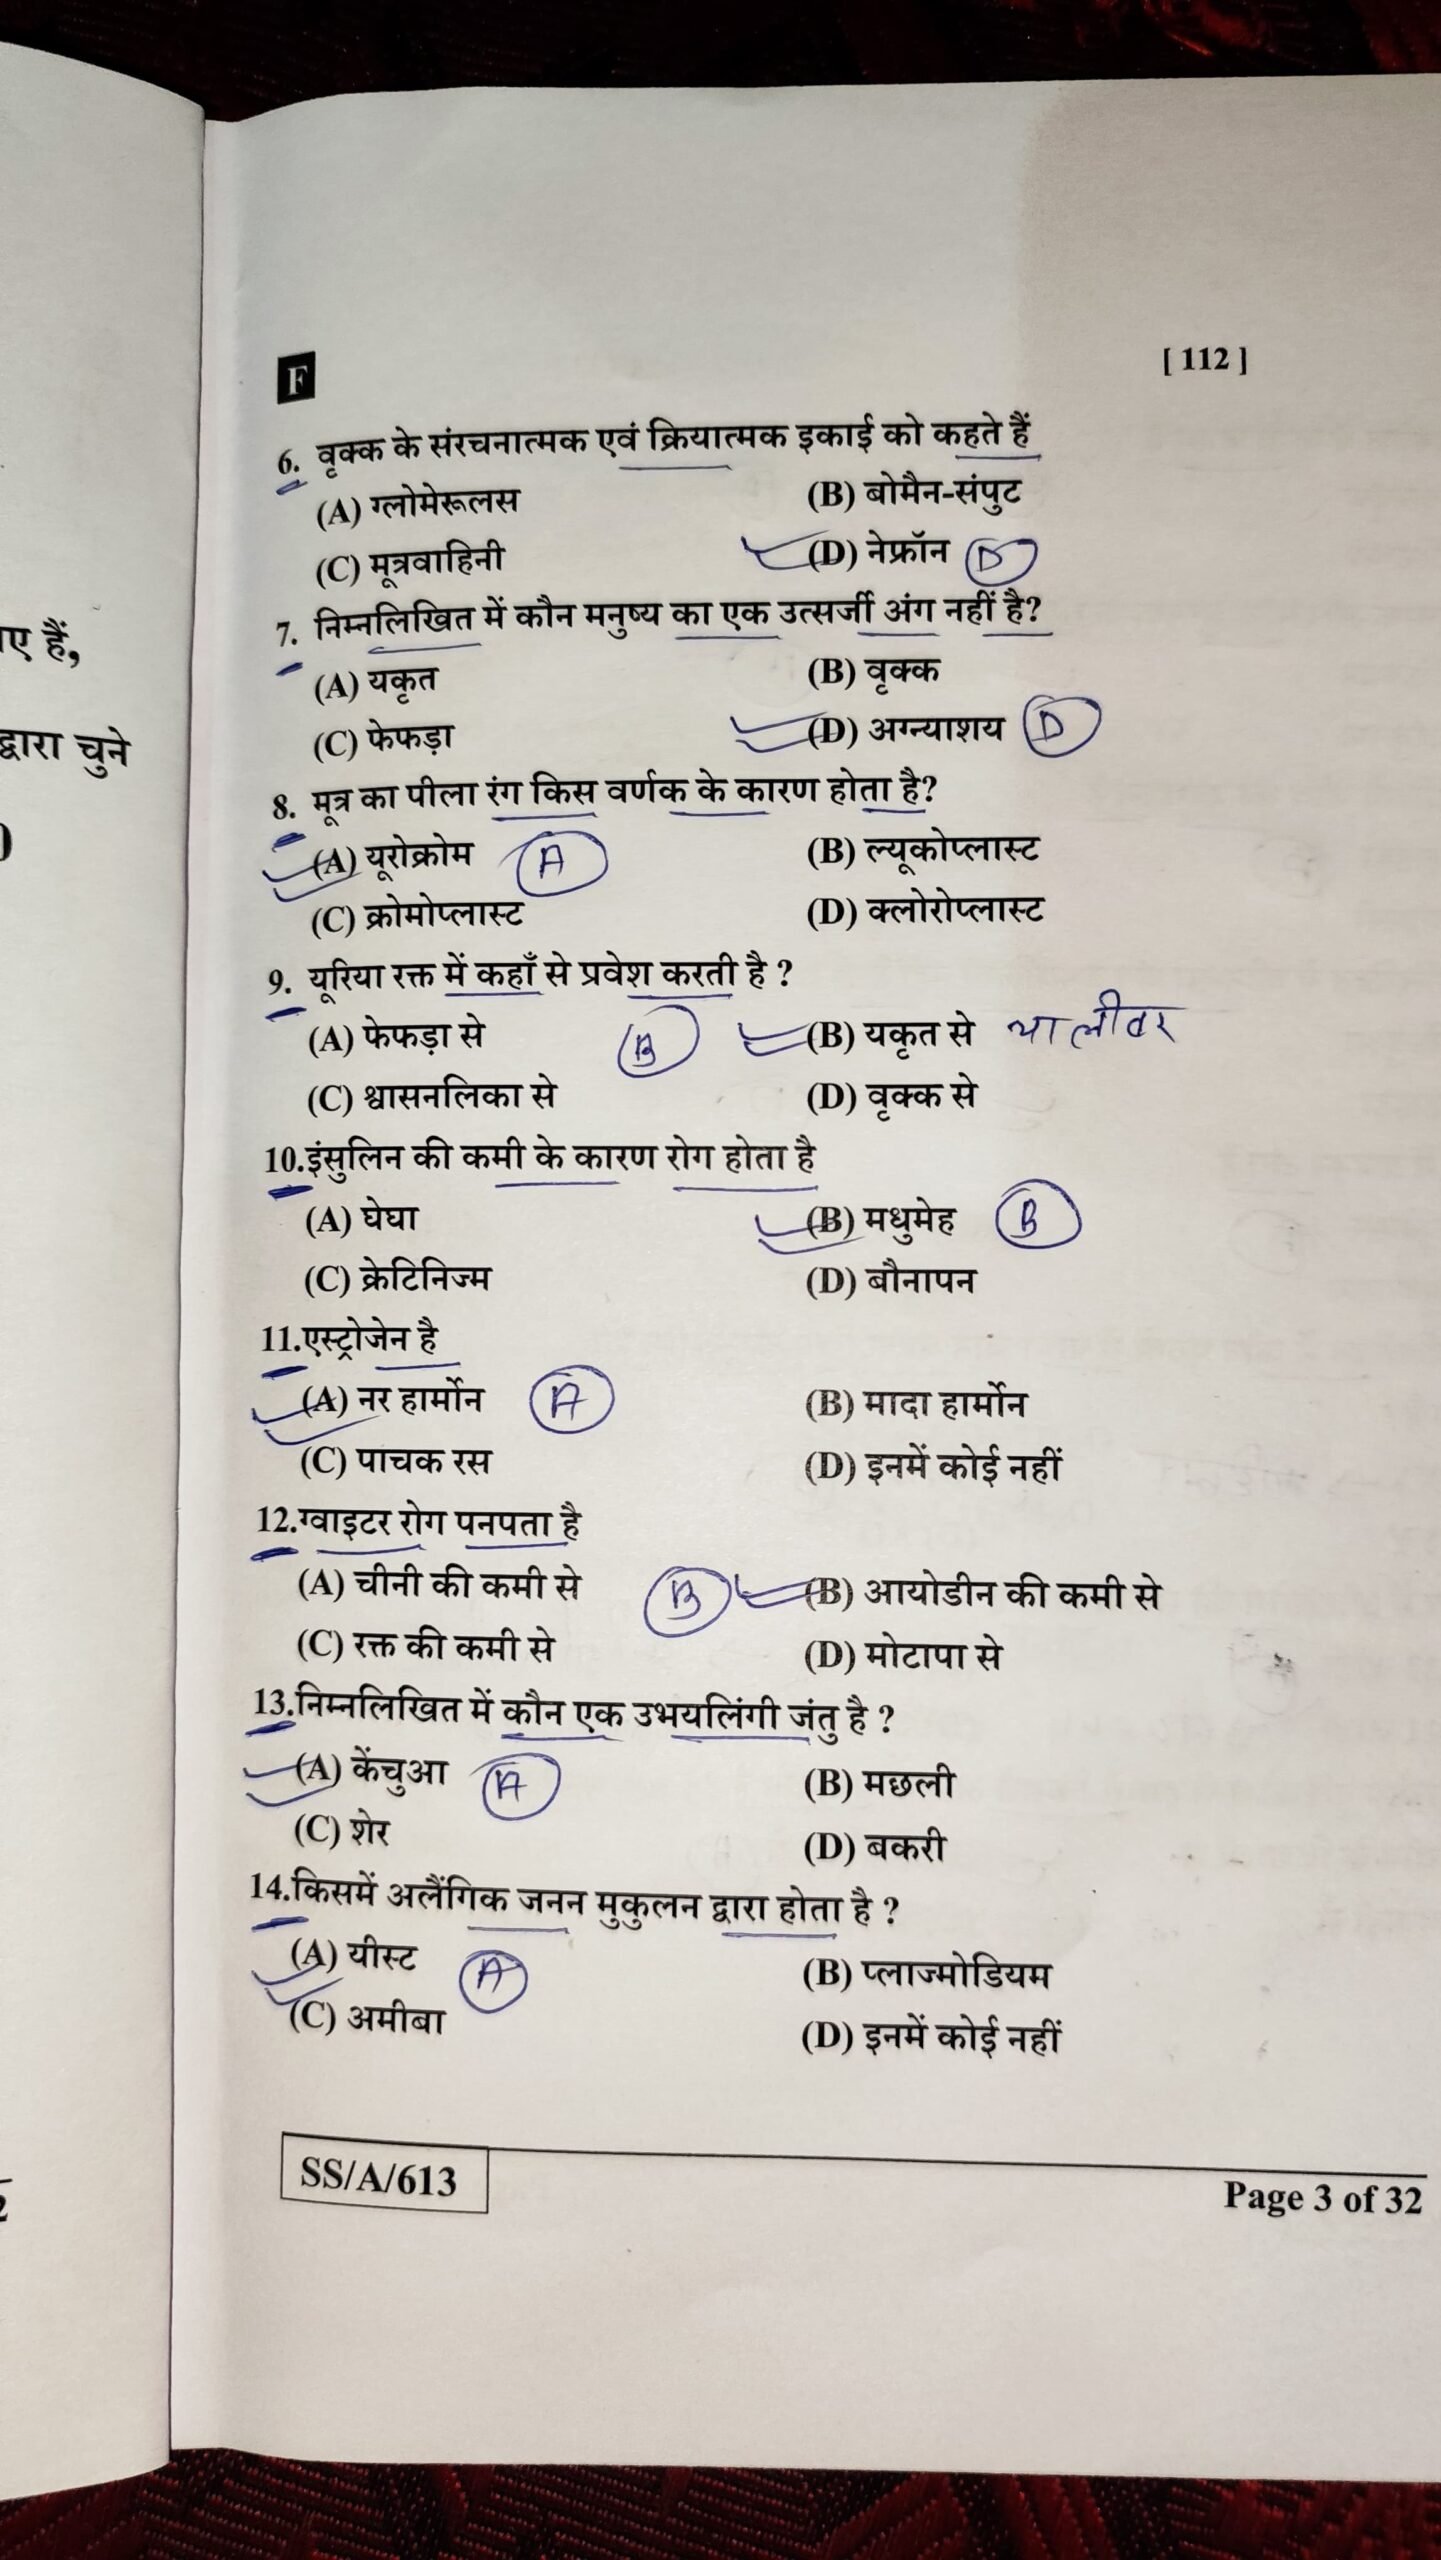 ए हैं,
द्वारा चुने
)
2
F
[ 112 ]
6. वृक्क के संरचनात्मक एवं क्रियात्मक इकाई को कहते हैं
(A) ग्लोमेरूलस (B) बोमैन-संपुट
(C) मूत्रवाहिनी (D) नेफ्रॉन D
7. निम्नलिखित में कौन मनुष्य का एक उत्सर्जी अंग नहीं है?
(A) यकृत (B) वृक्क
(C) फेफड़ा (D) अग्न्याशय D
8. मूत्र का पीला रंग किस वर्णक के कारण होता है?
(A) यूरोक्रोम A (B) ल्यूकोप्लास्ट
(C) क्रोमोप्लास्ट (D) क्लोरोप्लास्ट
9. यूरिया रक्त में कहाँ से प्रवेश करती है ?
(A) फेफड़ा से B (B) यकृत से या लीवर
(C) श्वासनलिका से (D) वृक्क से
10.इंसुलिन की कमी के कारण रोग होता है
(A) घेघा (B) मधुमेह B
(C) क्रेटिनिज्म (D) बौनापन
11.एस्ट्रोजेन है
(A) नर हार्मोन A (B) मादा हार्मोन
(C) पाचक रस (D) इनमें कोई नहीं
12.ग्वाइटर रोग पनपता है
(A) चीनी की कमी से B (B) आयोडीन की कमी से
(C) रक्त की कमी से (D) मोटापा से
13.निम्नलिखित में कौन एक उभयलिंगी जंतु है ?
(A) केंचुआ A (B) मछली
(C) शेर (D) बकरी
14.किसमें अलैंगिक जनन मुकुलन द्वारा होता है ?
(A) यीस्ट A (B) प्लाज्मोडियम
(C) अमीबा (D) इनमें कोई नहीं
SS/A/613
Page 3 of 32